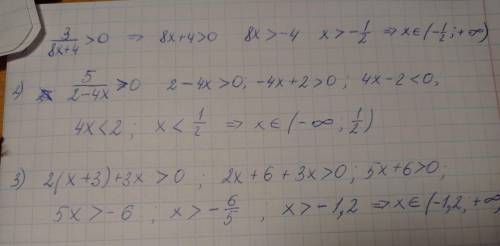 3/(8x+4) >0 ⇒ 8x+4>0 8x>-4 x>-1/2 ⇒ x∈(-1/2;+∞)
2) 5/(2-4x) >0 2-4x>0; -4x+2>0; 4x-2<0,
4x<2; x<1/2 ⇒ x∈(-∞, 1/2)
3) 2(x+3)+3x>0; 2x+6+3x>0; 5x+6>0;
5x>-6; x>-6/5; x>-1,2 ⇒ x∈(-1,2, +∞